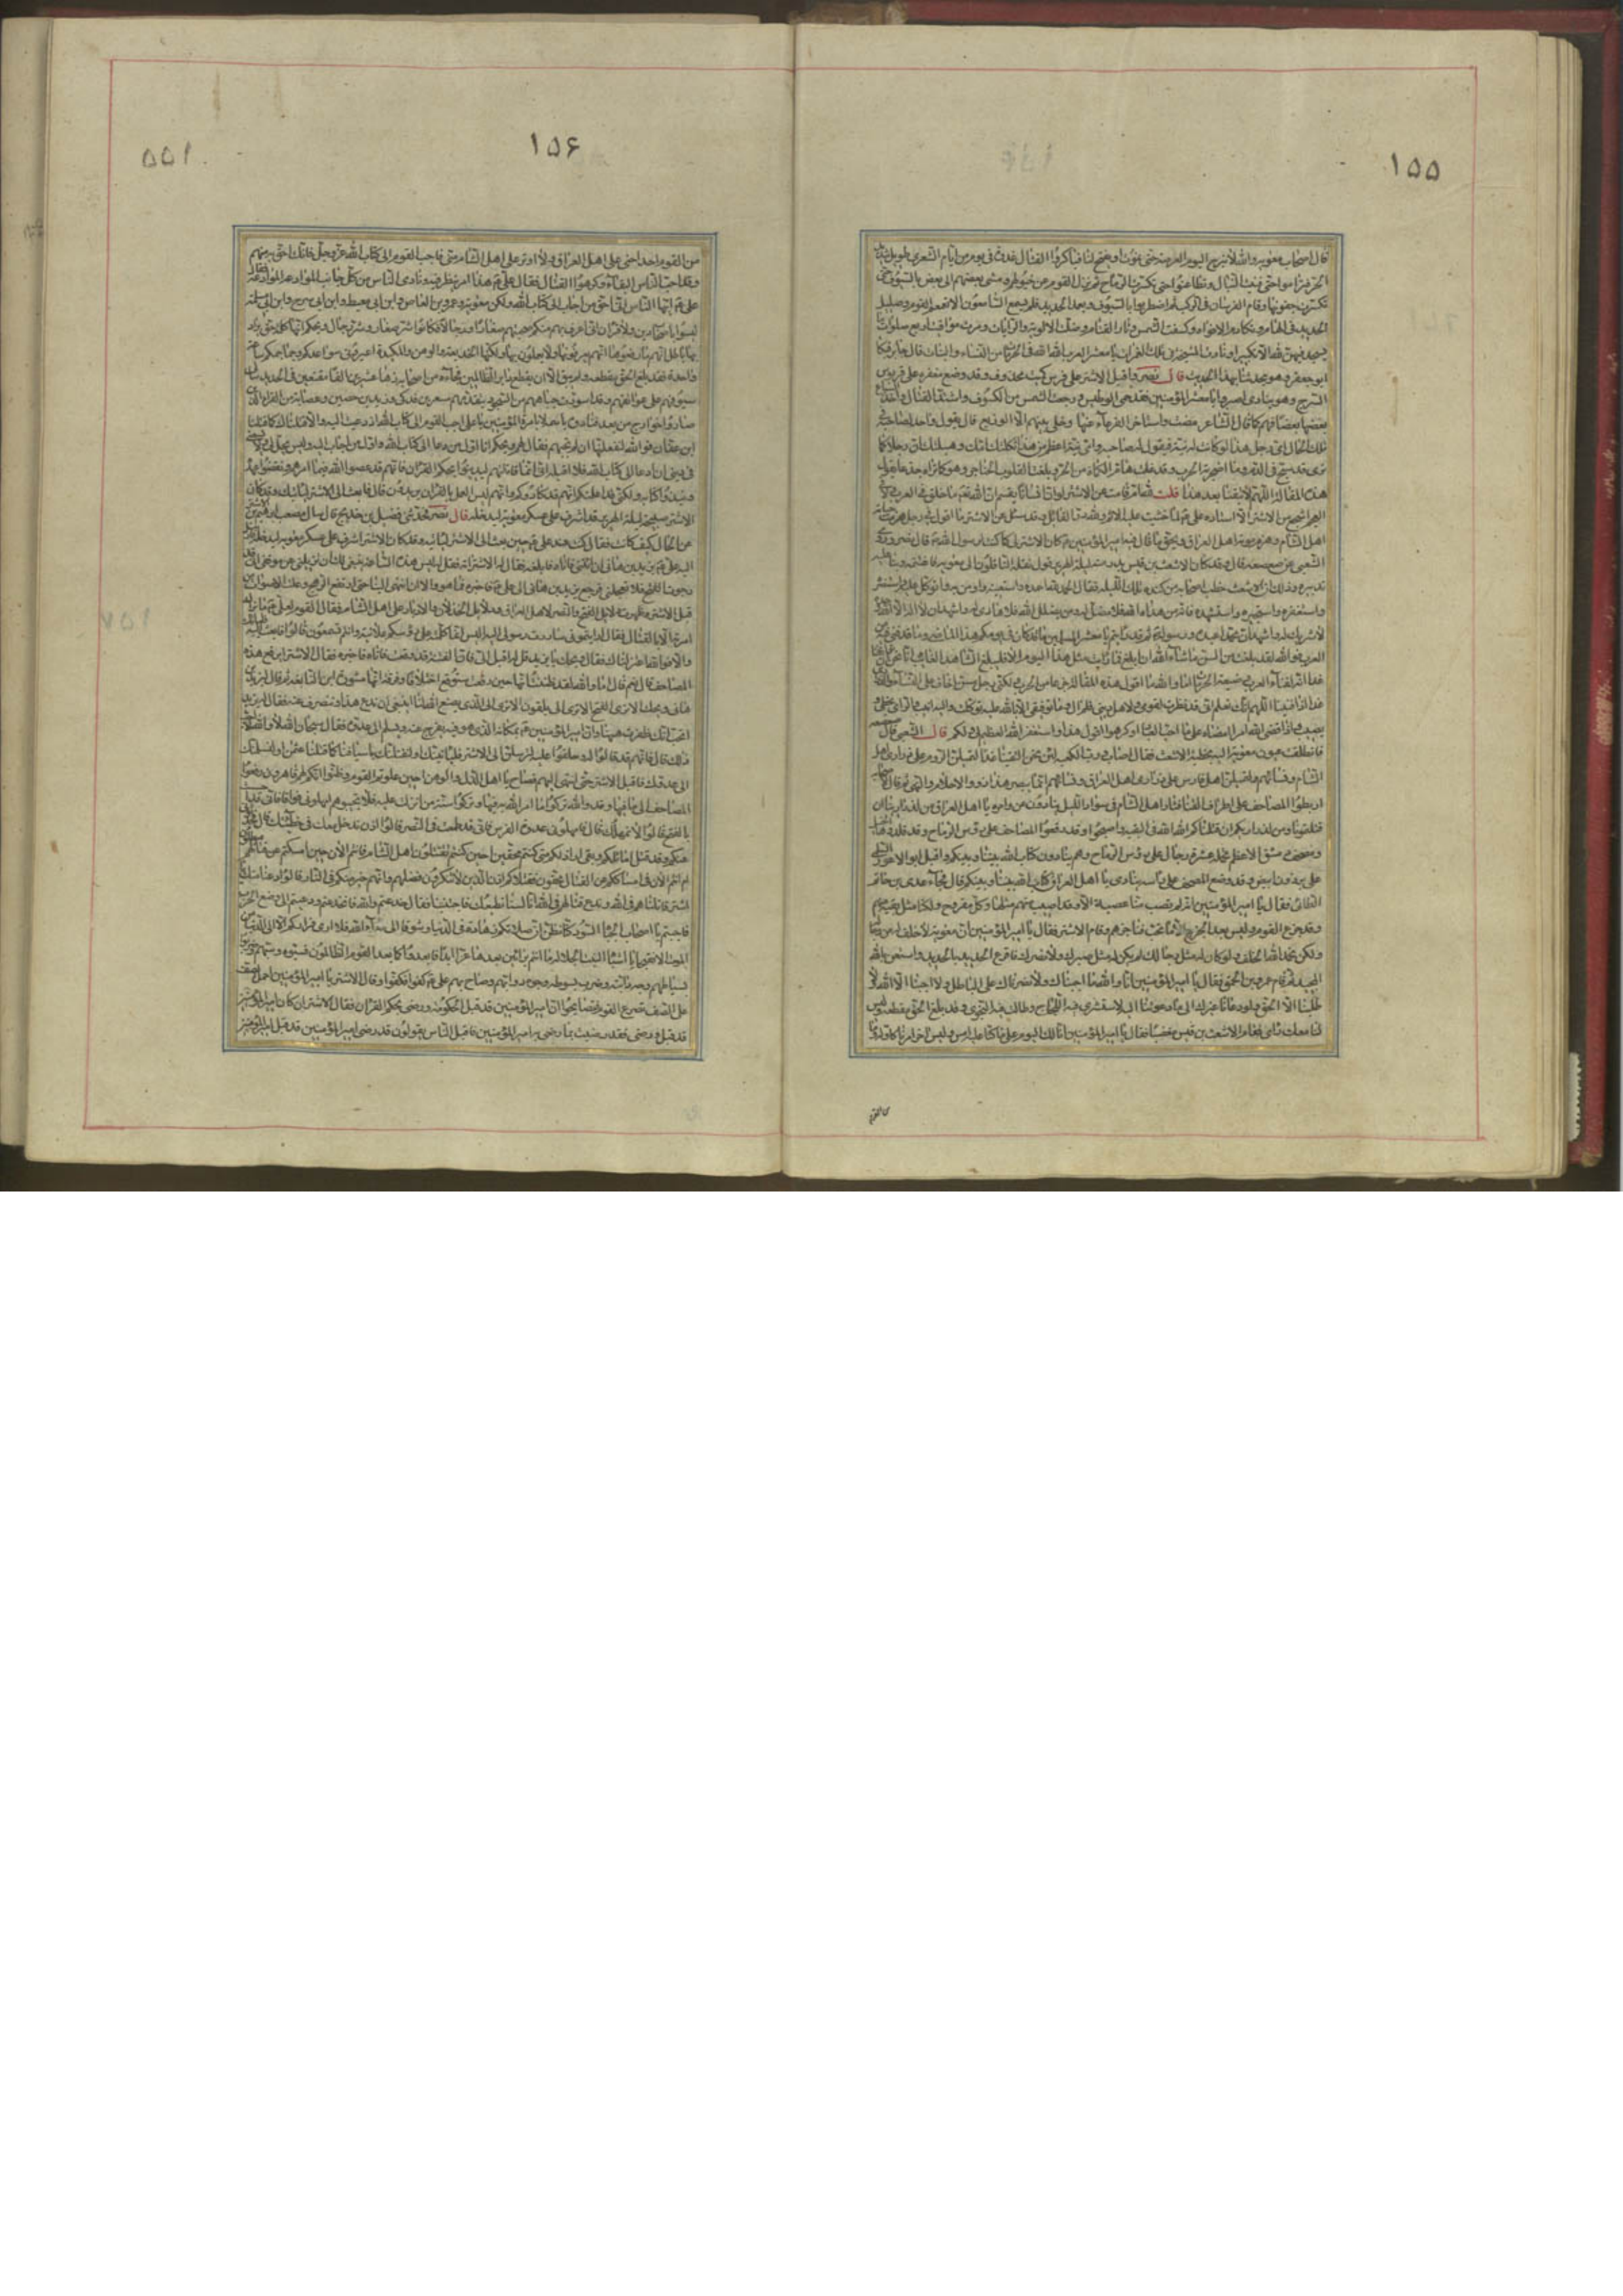 ١٥٥
قال اصحاب معويه والله لا نبرح اليوم العرصة حتى نموت او يفتح لنا فباكروا القتال غدوة في يوم من ايام الشعرى طويل شديد
الحر فتراموا حتى فنيت النبال وتطاعنوا حتى تكسرت الرماح ثم نزل القوم عن خيولهم ومشى بعضهم الى بعض بالسيوف حتى
تكسرت جفونها وقام الفرسان في الركب ثم اضطربوا بالسيوف وبعمد الحديد فلم يسمع السامعون الا تغمغم القوم وصليل
الحديد في الهام وتكادم الافواه وكسفت الشمس وثار القتام وضلت الالوية والرايات ومرت مواقيت اربع صلوات ما
يسجد فيهن لله الا تكبيرا ونادت المشيخة في تلك الغمرات يا معشر العرب الله الله في الحرمات من النساء والبنات قال جابر فبكا
ابو جعفر وهو يحدثنا بهذا الحديث قال نصر واقبل الاشتر على فرس كميت محذوف وقد وضع مغفره على قربوس
السرج وهو ينادى اصبروا يا معشر المؤمنين فقد حمى الوطيس ورجعت الشمس من الكسوف واشتد القتال واخذت السباع
بعضها بعضا فهم كما قال الشاعر مضت واستاخر القرعاء عنها وخلى بينهم الا الوزيع قال يقول واحد لصاحبه في
تلك الحال اى رجل هذا لو كانت له نية فيقول له صاحبه واى نية اعظم من هذه ثكلتك امك وهبلتك ان رجلا كما
ترى قد سبح في الدم وما اضجرته الحرب وقد غلت هام الكماة من الحر وبلغت القلوب الحناجر وهو كما تراه جزعا يقول
هذه المقالة اللهم لا تبقنا بعد هذا قلت لله ام قامت عن الاشتر لو ان انسانا يقسم ان الله تعالى ما خلق في العرب ولا في
العجم اشجع من الاشتر الا استاذه على ع لما خشيت عليه الاثم ولله در القائل وقد سئل عن الاشتر ما اقول في رجل هزمت حياته
اهل الشام وهزم موته اهل العراق وبحق ما قال فيه امير المؤمنين ع كان الاشتر لى كما كنت لرسول الله ص قال نصر وروى
الشعبى عن صعصعة قال وقد كان الاشعث بن قيس بدر منه ليلة الهرير قول نقله الناقلون الى معويه فاغتنمه وبنى عليه
تدبيره وذلك ان الاشعث خطب اصحابه من كندة تلك الليلة فقال الحمد لله احمده واستعينه واومن به واتوكل عليه واستنصره
واستغفره واستجيره واستهديه فانه من هداه الله فلا مضل له ومن يضلل الله فلا هادى له واشهد ان لا اله الا الله وحده
لا شريك له واشهد ان محمدا عبده ورسوله ثم قد رايتم يا معشر المسلمين ما قد كان في يومكم هذا الماضى وما قد فنى فيه من
العرب فوالله لقد بلغت من السن ما شاء الله ان ابلغ فما رايت مثل هذا اليوم الا فليبلغ الشاهد الغائب انا نحن ان تواقفنا
غدا انه لفناء العرب وضيعة الحرمات اما والله ما اقول هذه المقالة جزعا من الحرب لكنى رجل مسن اخاف على النساء والذرارى
غدا اذا فنينا اللهم انك تعلم انى قد نظرت لقومى ولاهل دينى فلم ال وما توفيقى الا بالله عليه توكلت واليه انيب والراى يخطئ و
يصيب واذا قضى الله امرا امضاه على ما احب العباد او كرهوا اقول هذا واستغفر الله العظيم لى ولكم قال الشعبى قال صعصعه
فانطلقت عيون معويه اليه بخطبة الاشعث فقال اصاب ورب الكعبه لئن نحن التقينا غدا لتميلن الروم على ذرارى اهل
الشام ونسائهم ولتميلن اهل فارس على ذرارى اهل العراق ونسائهم انما يبصر هذا ذووا الاحلام والنهى ثم قال لاصحابه
اربطوا المصاحف على اطراف القنا فثار اهل الشام في سواد الليل ينادون عن امره يا اهل العراق من لذرارينا ان
قتلتمونا ومن لذراريكم ان قتلناكم الله الله في البقية واصبحوا وقد رفعوا المصاحف على رؤس الرماح وقد قلدوها الخيل
ومصحف دمشق الاعظم يحمله عشرة رجال على رؤس الرماح وهم ينادون كتاب الله بيننا وبينكم واقبل ابو الاعور السلمى
على برذون ابيض وقد وضع المصحف على راسه ينادى يا اهل العراق كتاب الله بيننا وبينكم قال فجاء عدى بن حاتم
الطائى فقال يا امير المؤمنين انه لم يصب منا عصبة الا وقد اصيب منهم مثلها وكل مقروح ولكنا امثل بقية منهم
وقد جزع القوم وليس بعد الجزع الا ما نحب فناجزهم وقام الاشتر فقال يا امير المؤمنين ان معويه لا خلف له من رجاله
ولكن بحمد الله الخلف ولو كان له مثل رجالك لم يكن له مثل صبرك ولا نصرك فاقرع الحديد بالحديد واستعن بالله
الحميد ثم قام عمرو بن الحمق فقال يا امير المؤمنين انا والله ما اجبناك ولا نصرناك على الباطل ولا اجبنا الا الله ولا
طلبنا الا الحق ولو دعانا غيرك الى ما دعوتنا اليه لاستشرى فيه اللجاج وطالت فيه النجوى وقد بلغ الحق مقطعه وليس
لنا معك راى فقام الاشعث بن قيس مغضبا فقال يا امير المؤمنين انا لك اليوم على ما كنا عليه امس وليس اخر امرنا كاوله وما
من القوم
١٥۶
من القوم احد احنى على اهل العراق ولا اوتر على اهل الشام منى فاجب القوم الى كتاب الله عز وجل فانك احق به منهم
وقد احب الناس البقاء وكرهوا القتال فقال على ع هذا امر ينظر فيه ونادى الناس من كل جانب الموادعه الموادعه فقال
على ع ايها الناس انى احق من اجاب الى كتاب الله ولكن معويه وعمرو بن العاص وابن ابى معيط وابن ابى سرح وابن مسلمه
ليسوا باصحاب دين ولا قران انى اعرف بهم منكم صحبتهم صغارا ورجالا فكانوا شر صغار وشر رجال ويحكم انها كلمة حق يراد
بها باطل انهم ما رفعوها انهم يعرفونها ولا يعملون بها ولكنها الخديعه والوهن والمكيدة اعيرونى سواعدكم وجماجمكم ساعة
واحدة فقد بلغ الحق مقطعه ولم يبق الا ان يقطع دابر الظالمين فجاءه من اصحابه زهاء عشرين الفا مقنعين في الحديد شاكى
سيوفهم على عواتقهم وقد اسودت جباههم من السجود يتقدمهم مسعر بن فدكى وزيد بن حصين وعصابة من القراء الذين
صاروا خوارج من بعد فنادوه باسمه لا بامرة المؤمنين يا على اجب القوم الى كتاب الله اذ دعيت اليه والا قتلناك كما قتلنا
ابن عفان فوالله لنفعلنها ان لم تجبهم فقال لهم ويحكم انا اول من دعا الى كتاب الله واول من اجاب اليه وليس يحل لى ولا يسعنى
في دينى ان ادعا الى كتاب الله فلا اقبله انى انما قاتلتهم ليدينوا بحكم القران فانهم قد عصوا الله فيما امرهم ونقضوا عهده
ونبذوا كتابه ولكنى قد اعلمتكم انهم قد كادوكم وانهم ليس العمل بالقران يريدون قالوا فابعث الى الاشتر لياتينك وقد كان
الاشتر صبيحة ليلة الهرير قد اشرف على عسكر معويه ليدخله قال نصر فحدثنى فضيل بن خديج قال سال مصعب ابراهيم بن الاشتر
عن الحال كيف كانت فقال كنت عند على ع حين بعث الى الاشتر لياتيه وقد كان الاشتر اشرف على عسكر معويه ليدخله فارسل
اليه على ع يزيد بن هانى ان ائتنى فاتاه فابلغه فقال له الاشتر ائته فقل له ليس هذه الساعة ينبغى لك ان تزيلنى عن موقفى انى قد
رجوت الفتح فلا تعجلنى فرجع يزيد بن هانى الى على ع فاخبره فما هو الا ان انتهى الينا حتى ارتفع الرهج وعلت الاصوات من
قبل الاشتر وظهرت دلائل الفتح والنصر لاهل العراق ودلائل الخذلان والادبار على اهل الشام فقال القوم لعلى ع ما نراك
امرته الا بالقتال فقال ارايتمونى ساررت رسولى اليه اليس انما كلمته على رؤسكم علانية وانتم تسمعون قالوا فابعث اليه فلياتك
والا فوالله اعتزلناك فقال ويحك يا يزيد قل له اقبل الى فان الفتنة قد وقعت فاتاه فاخبره فقال الاشتر ابرفع هذه
المصاحف قال نعم قال اما والله لقد ظننت انها حين رفعت ستوقع اختلافا وفرقة انها مشورة ابن النابغة ثم قال ليزيد بن
هانى ويحك الا ترى الفتح الا ترى الى ما يلقون الا ترى الى الذى يصنع الله لنا اينبغى ان ندع هذا وننصرف عنه فقال له يزيد
اتحب انك ظفرت هيهنا وان امير المؤمنين ع بمكانه الذى هو فيه يفرج عنه ويسلم الى عدوه فقال سبحان الله لا والله لا احب
ذلك قال فانهم قد قالوا له وحلفوا عليه لترسلن الى الاشتر فلياتينك او لنقتلنك باسيافنا كما قتلنا عثمن او لنسلمنك
الى عدوك فاقبل الاشتر حتى انتهى اليهم فصاح يا اهل الذل والوهن احين علوتم القوم وظنوا انكم لهم قاهرون رفعوا
المصاحف يدعونكم الى ما فيها وقد والله تركوا ما امر الله به فيها وتركوا سنة من انزلت عليه فلا تجيبوهم امهلونى فواقا فانى قد احسست
بالفتح قالوا لا نمهلك قال فامهلونى عدوة الفرس فانى قد طمعت في النصر قالوا اذن ندخل معك في خطيئتك قال فحدثونى
عنكم وقد قتل اماثلكم وبقى اراذلكم متى كنتم محقين احين كنتم تقتلون اهل الشام فانتم الان حين امسكتم عن قتالهم مبطلون
ام انتم الان في امساككم عن القتال محقون فقتلاكم اذن الذين لا تنكرون فضلهم وانهم خير منكم في النار قالوا دعنا منك يا
اشتر قاتلناهم في الله وندع قتالهم في الله انا لسنا نطيعك فاجتنبنا فقال خدعتم والله فانخدعتم ودعيتم الى وضع الحرب
فاجبتم يا اصحاب الجباه السود كنا نظن ان صلاتكم زهادة في الدنيا وشوقا الى لقاء الله فلا ارى فراركم الا الى الدنيا من
الموت الا فقبحا يا اشباه النيب الجلالة ما انتم برائين بعدها عزا ابدا فابعدوا كما بعد القوم الظالمون فسبوه وسبهم وضربوا
بسياطهم وجه دابته وضرب بسوطه وجوه دوابهم وصاح بهم على ع كفوا فكفوا وقال الاشتر يا امير المؤمنين احمل الصف
على الصف تصرع القوم فتصايحوا ان امير المؤمنين قد قبل الحكومة ورضى بحكم القران فقال الاشتر ان كان امير المؤمنين
قد قبل ورضى فقد رضيت بما رضى به امير المؤمنين فاقبل الناس يقولون قد رضى امير المؤمنين قد قبل امير المؤمنين